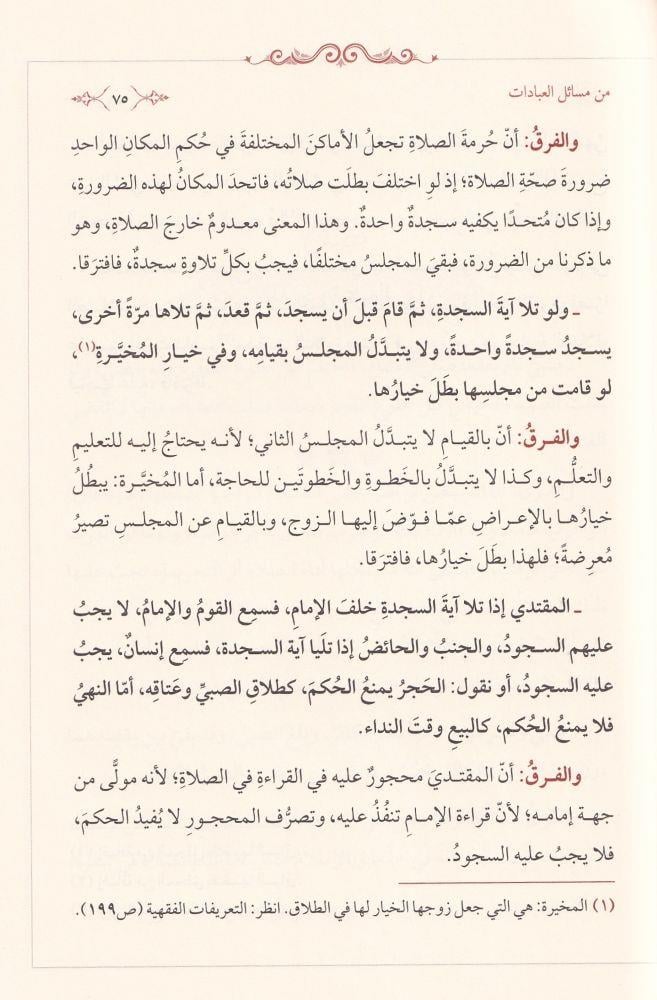 من مسائل العبادات
٧٥
والفرقُ: أنّ حُرمةَ الصلاةِ تجعلُ الأماكنَ المختلفةَ في حُكمِ المكانِ الواحدِ
ضرورةَ صحّةِ الصلاة؛ إذ لوِ اختلفَ بطلَت صلاتُه، فاتحدَ المكانُ لهذه الضرورةِ،
وإذا كان مُتحدًا يكفيه سجدةٌ واحدةٌ. وهذا المعنى معدومٌ خارجَ الصلاةِ، وهو
ما ذكرنا من الضرورة، فبقيَ المجلسُ مختلفًا، فيجبُ بكلِّ تلاوةٍ سجدةٌ، فافترَقا.
ـ ولو تلا آيةَ السجدةِ، ثمَّ قامَ قبلَ أن يسجدَ، ثمَّ قعدَ، ثمَّ تلاها مرّةً أخرى،
يسجدُ سجدةً واحدةً، ولا يتبدَّلُ المجلسُ بقيامِه، وفي خيارِ المُخيَّرةِ(١)،
لو قامت من مجلسِها بطَلَ خيارُها.
والفرقُ: أنّ بالقيامِ لا يتبدَّلُ المجلسُ الثاني؛ لأنه يحتاجُ إليه للتعليمِ
والتعلُّمِ، وكذا لا يتبدَّلُ بالخَطوةِ والخَطوتَين للحاجة، أما المُخيَّرة: يبطُلُ
خيارُها بالإعراضِ عمّا فوّضَ إليها الزوج، وبالقيامِ عن المجلسِ تصيرُ
مُعرِضةً؛ فلهذا بطَلَ خيارُها، فافترَقا.
ـ المقتدي إذا تلا آيةَ السجدةِ خلفَ الإمامِ، فسمِع القومُ والإمامُ، لا يجبُ
عليهم السجودُ، والجنبُ والحائضُ إذا تلَيا آية السجدة، فسمِع إنسانٌ، يجبُ
عليه السجودُ، أو نقول: الحَجرُ يمنعُ الحُكمَ، كطلاقِ الصبيِّ وعَتاقِه، أمّا النهيُ
فلا يمنعُ الحُكم، كالبيعِ وقتَ النداء.
والفرقُ: أنّ المقتديَ محجورٌ عليه في القراءةِ في الصلاةِ؛ لأنه مولًّى من
جهةِ إمامه؛ لأنّ قراءة الإمامِ تنفُذُ عليه، وتصرُّف المحجورِ لا يُفيدُ الحكمَ،
فلا يجبُ عليه السجودُ.
(١) المخيرة: هي التي جعل زوجها الخيار لها في الطلاق. انظر: التعريفات الفقهية (ص١٩٩).